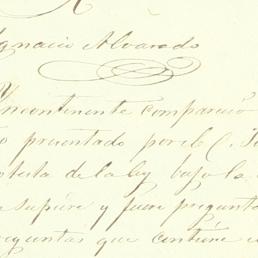 Ignacio Alvarado
Yncontinente compareció
presentado por el C.
de la ley bajo la
supiere y fuere pregunta
preguntas que contiene